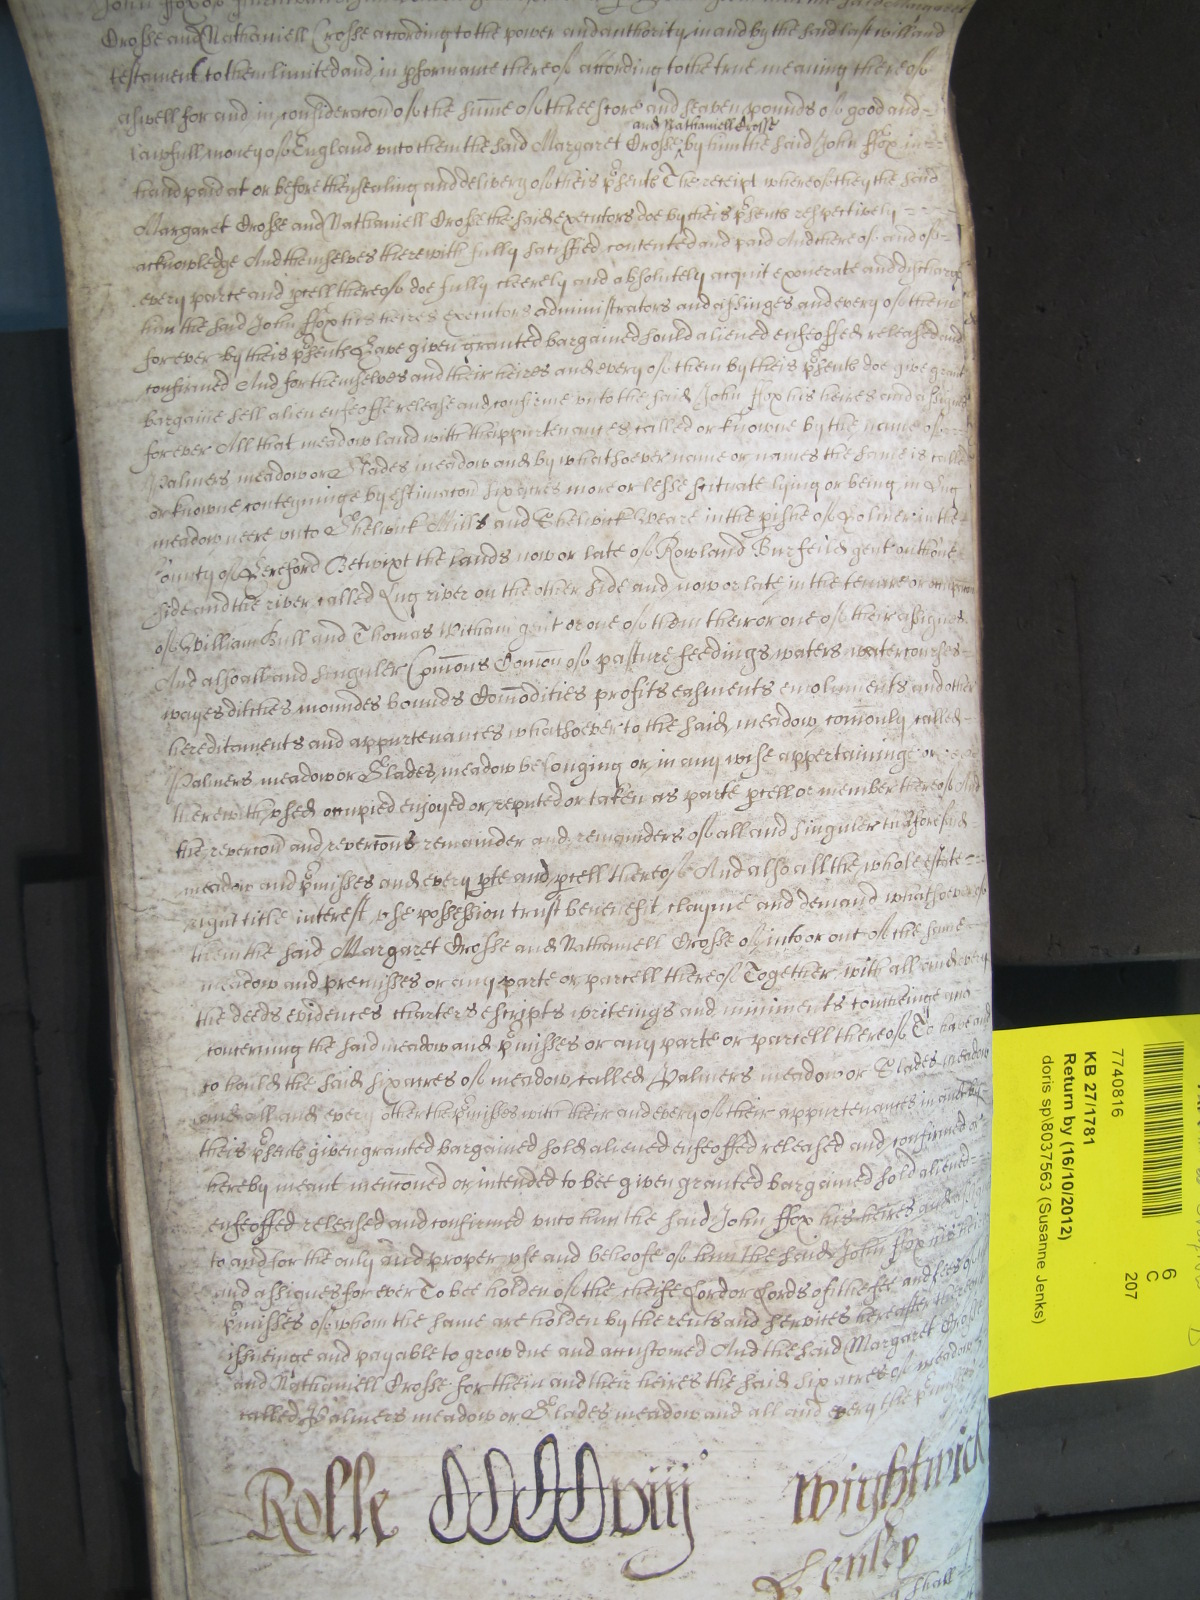 Crosse and Nathaniell Crosse according to the power and authority in and by the said last will and
testament to them limited and in pformance thereof according to the true meaning thereof
aswell for and in consideracon of the sume of threescore and seaven pounds of good and
lawfull money of England vnto them the said Margaret Crosse and Nathaniell Crosse by him the said John Ffox in
hand paid at or before thensealing and delivery of theis psents The receipt whereof they the said
Margaret Crosse and Nathaniell Crosse the said executors doe by theis psents respectively
acknowledge And themselves therewith fully satisfied contented and paid And thereof and of
every parte and pcell thereof doe fully cleerely and absolutely acquit exonerate and discharge
him the said John Ffox his heires executors administrators and assinges and every of them
for ever by theis psents Have given granted bargained sould aliened enfeoffed released and
confirmed And for themselves and their heires and every of them by theis psents doe give grant
bargaine sell alien enfeoffe release and confirme vnto the said John Ffox his heires and assignes
for ever All that meadow land with thappurtenances called or knowne by the name of
Palmers meadow or Slades meadow and by whatsoever name or names the same is called
or knowne conteyninge by estimacon six acres more or lesse scituate lying or being in Lug
meadow neere vnto Shelwick Mills and Shelwick Weare in the pishe of Holmer in the
County of Hereford Betwixt the lands now or late of Rowland Burfeild gent on thone
side and the river called Lug river on the other side and now or late in the tenure or occupacon
of William Bull and Thomas Witham gent or one of them their or one of their assignes
And alsoe all and singuler Comons Comon of pasture feedings waters watercourses
wayes ditches moundes bounds Comodities profits easments emoluments and other
hereditaments and appurtenances whatsoever to the said meadow comonly called
Palmers meadow or Slades meadow belonging or in any wise appertaininge or
therewith vsed occupied enjoyed or reputed or taken as parte pcell or member thereof And
the revercon and revercons remainder and remainders of all and singuler thaforesaid
meadow and pmisses and every pte and pcell thereof And also all the whole estate
right title interest vse possession trust benefit clayme and demand whatsoever of
them the said Margaret Crosse and Nathaniell Crosse of into or out of the same
meadow and premisses or any parte or parcell thereof Together with all and every
the deeds evidences charters escripts writeings and miniments touchinge and
concerning the said meadow and pmisses or any parte or parcell thereof To have and
to hould the said six acres of meadow called Palmers meadow or Slades meadow
and all and every other the pmisses with their and every of their appurtenances in and by
theis psents given granted bargained sold aliened enfeoffed released and confirmed or
hereby meant mencioned or intended to bee given granted bargained sold aliened
enfeoffed released and confirmed vnto him the said John Ffox his heires and assignes
to and for the only and proper vse and behoofe of him the said John Ffox his heires
and assignes for ever To bee holden of the cheife Lord or Lords of the fee and fees of the
pmisses of whom the same are holden by the rents and services hereafter
issueinge and payable to grow due and accustomed And the said Margaret Crosse
and Nathaniell Crosse for them and their heires the said six acres of meadow
called Palmers meadow or Slades meadow and all and every the pmisses
Rolle CCCCviij Wightwick
Henley
shall
7740816
KB 27/1781
Return by (16/10/2012)
doris sp\8037563 (Susanne Jenks)
6
C
207